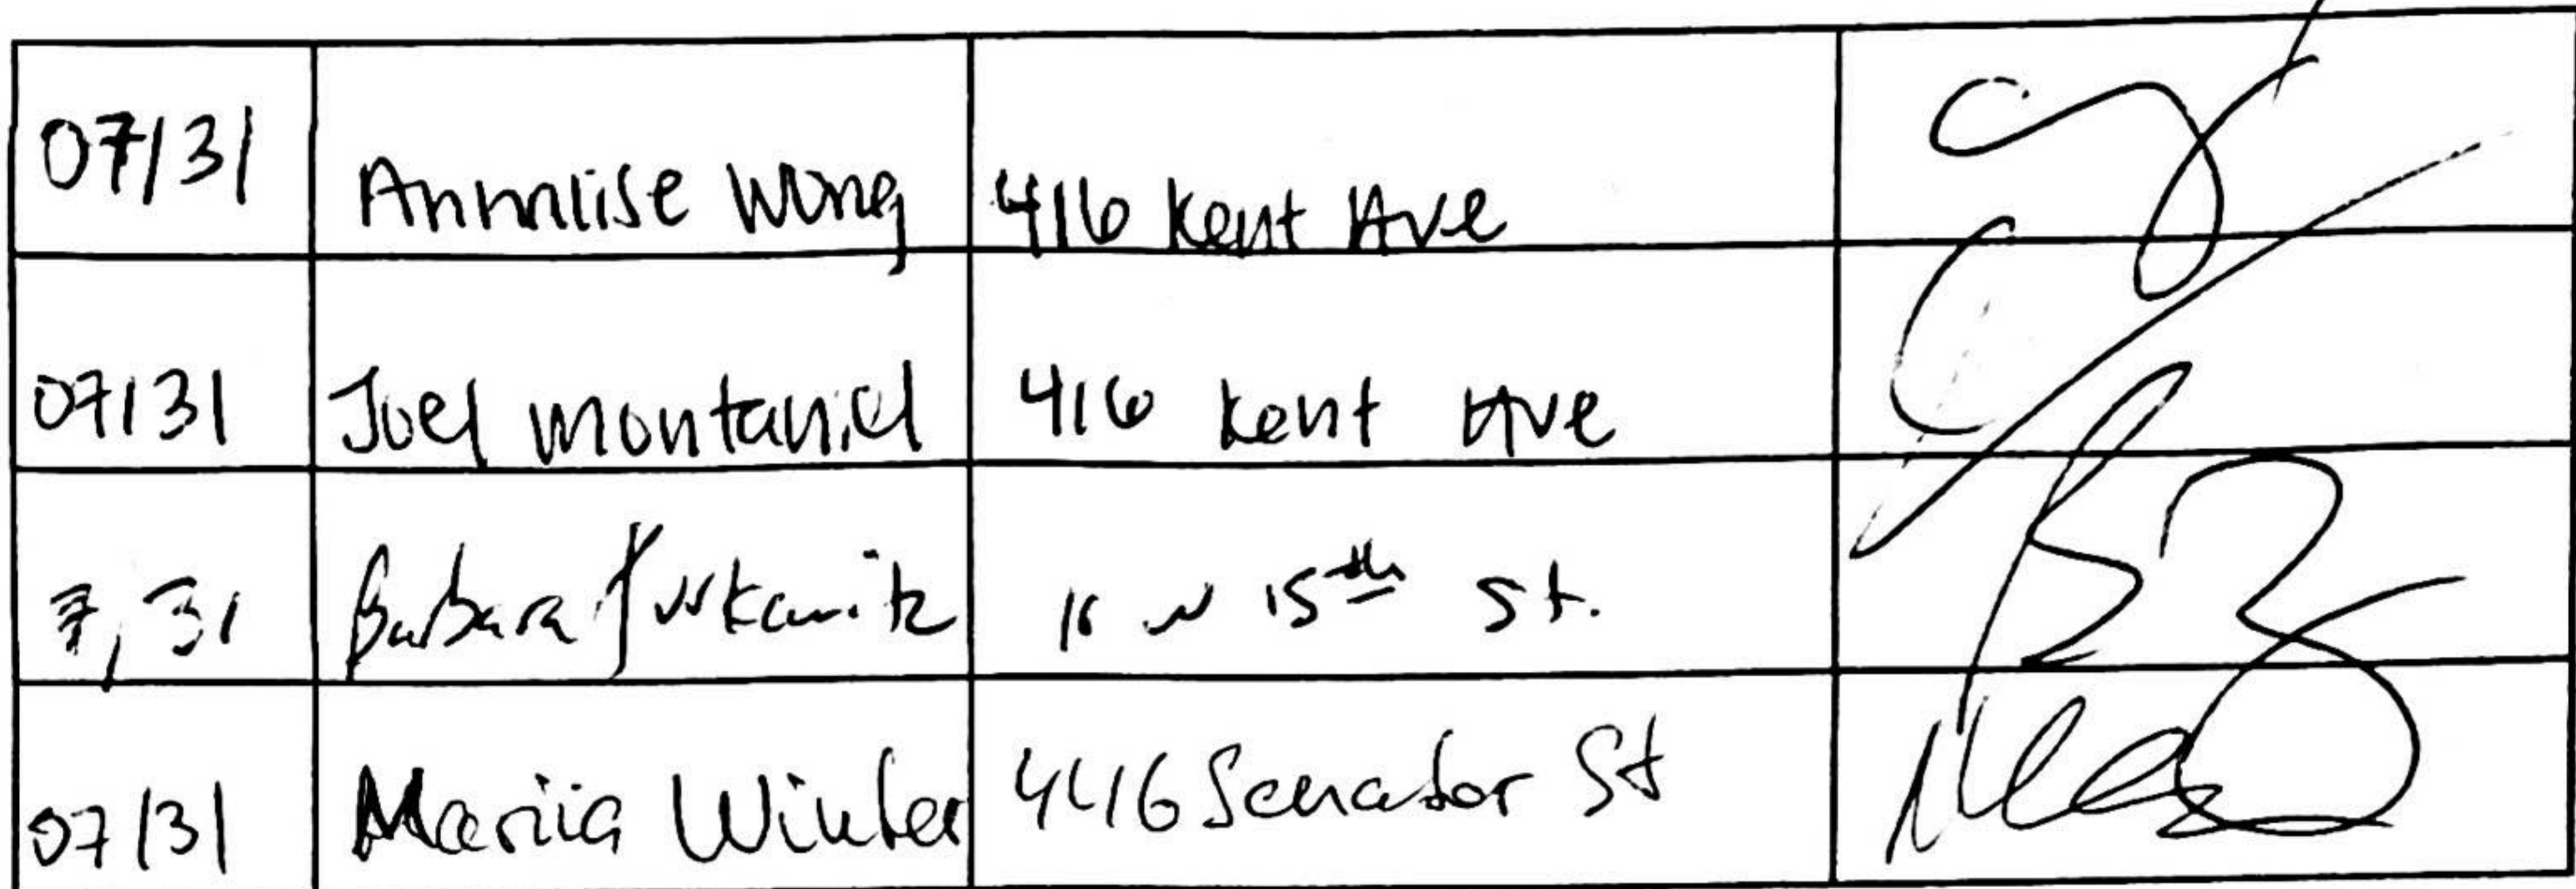 07/31 Annalise Wong 416 Kent Ave
07/31 Joel Montaniel 416 Kent Ave
7, 31 Barbara 15th St.
07/31 Mariia Winter 4416 Senator St